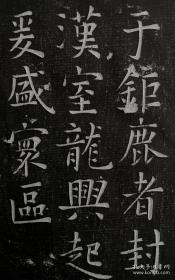 于鉅鹿者封
漢室龍興起
爰盛寰區